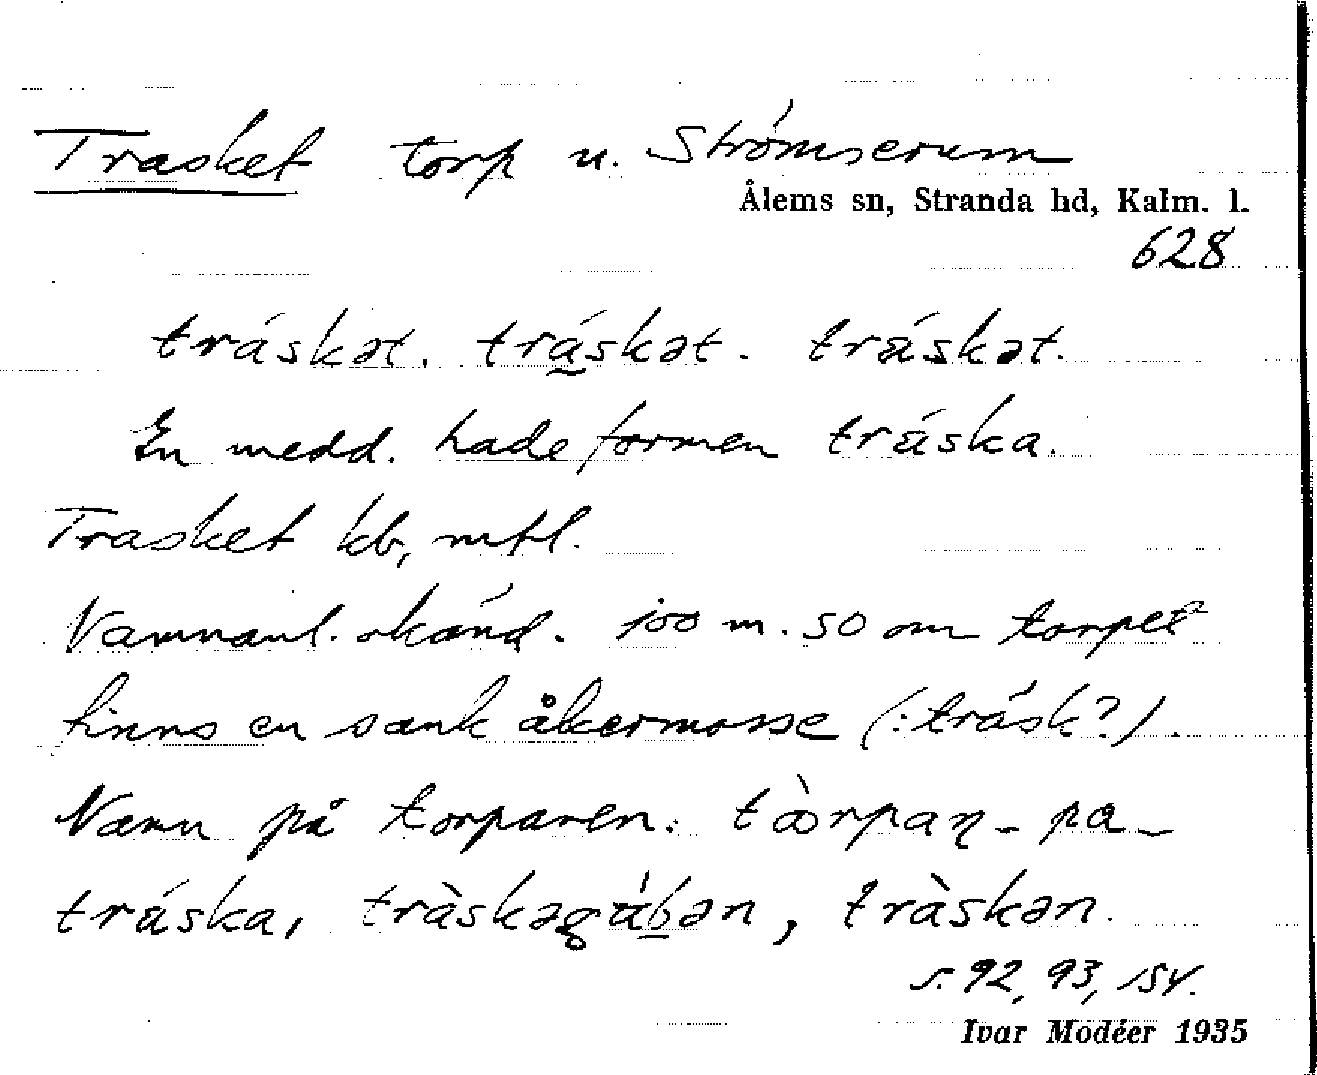 Trasket torp u. Strömserum
Ålems sn, Stranda hd, Kalm. l.
628
tráskət. trá̱skət. tráskət.
En medd. hade formen tráska.
Trasket kb, mtl.
Namnanl. okänd. 100 m. SO om torpet
finns en sank åkermosse (: träsk?).
Namn på torparen: tòrpaɳ- pa-
tráska, tràskəgúbən, tràskən.
s. 92, 93, 154.
Ivar Modéer 1935